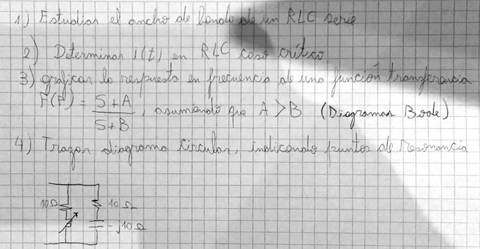 1) Estudiar el ancho de banda de un RLC serie
2) Determinar i(t) en RLC caso crítico
3) graficar la respuesta en frecuencia de una función transferencia
F(P) = S+A / S+B, asumiendo que A > B (Diagramas Bode)
4) Trazar diagrama circular, indicando puntos de resonancia
10Ω 10Ω
-j10Ω